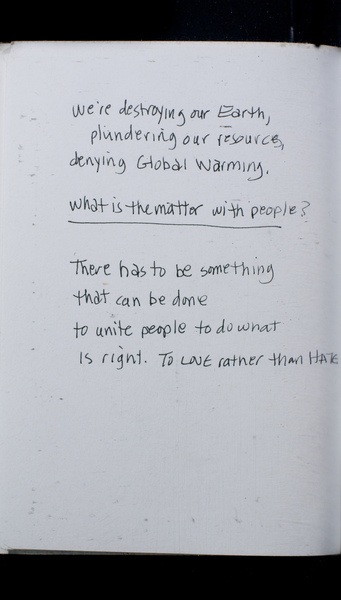 we're destroying our Earth,
plundering our resources,
denying Global Warming.
what is the matter with people?
There has to be something
that can be done
to unite people to do what
is right. To LOVE rather than HATE